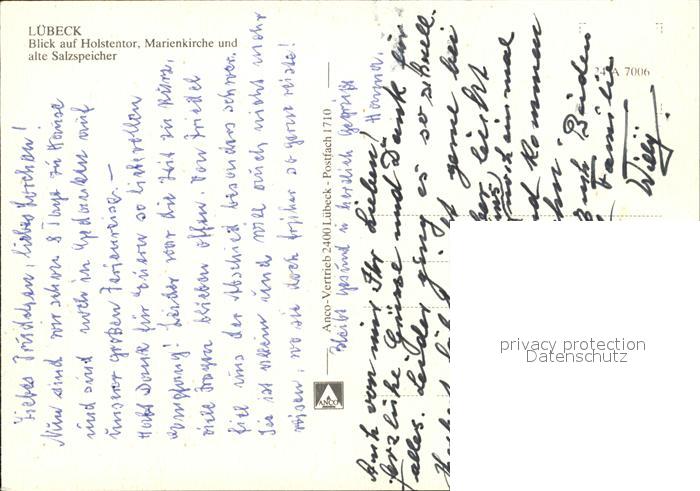 LÜBECK
Blick auf Holstentor, Marienkirche und
alte Salzspeicher
24 A 7006
Anco-Vertrieb 2400 Lübeck - Postfach 1710
ANCO
Liebes Brüderchen, liebes
Nun sind wir schon 8 Tage zu Hause
und sind noch in Gedanken auf
unserer großen Ferienreise. —
Habt Dank für Euern so liebevollen
Empfang! Leider war die Zeit zu kurz,
viele Fragen blieben offen. Von Friedel
fiel uns der Abschied besonders schwer.
Sie ist allein und will auch nicht mehr
reisen, wo sie doch früher so gerne reiste!
Bleibt gesund u. herzlich gegrüßt
Hanna.
Auch von mir Ihr Lieben!
Herzliche Grüsse und Dank für
alles. Leider ging es so schnell.
gerne bei
leicht
noch einmal
Kommen
Euch Beiden
Familie
Willy.
privacy protection
Datenschutz